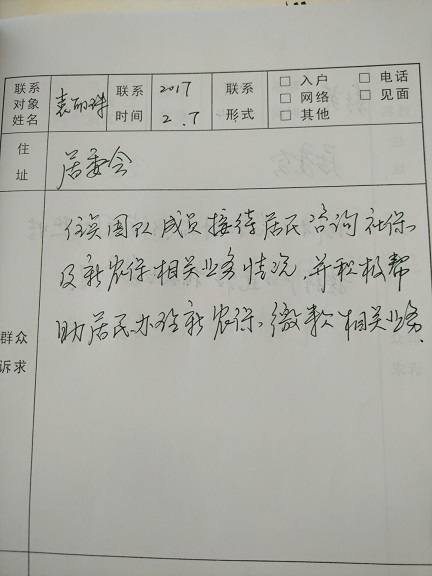 联系对象姓名 袁丽珠 联系时间 2017 2.7 联系形式 □ 入户 □ 电话 □ 网络 □ 见面 □ 其他
住址 居委会
群众诉求
团队成员接待居民咨询社保
及新农保相关业务情况,并积极帮
助居民办理新农保、缴款相关业务.